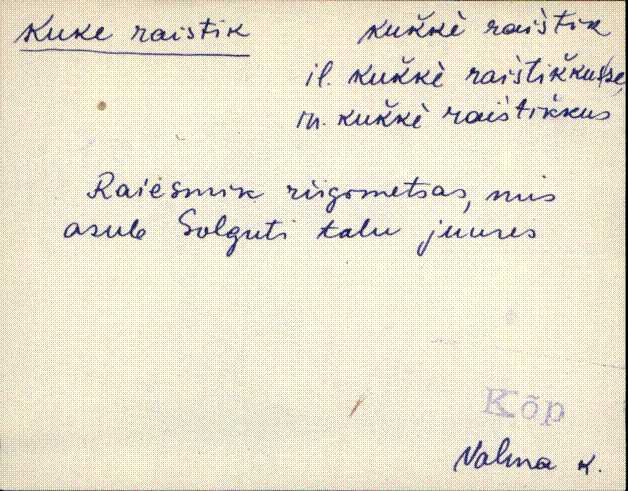 Kuke raistik
kukkè raistik
il. kukkè raistikkusse,
in. kukkè raistikkus
Raiesmik riigometsas, mis
asub Solguti talu juures
Kõp
Valma k.